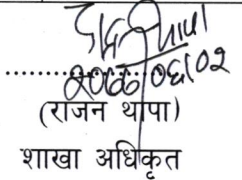 थापा
२०७७/०६/०२
(राजन थापा)
शाखा अधिकृत